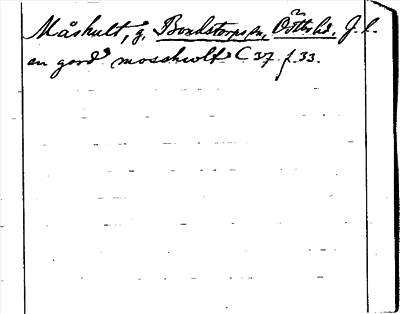 Måshult, g, Bondstorps sn, Östbo hd, J. l.
en gord mosshwlt C 37 f. 33.